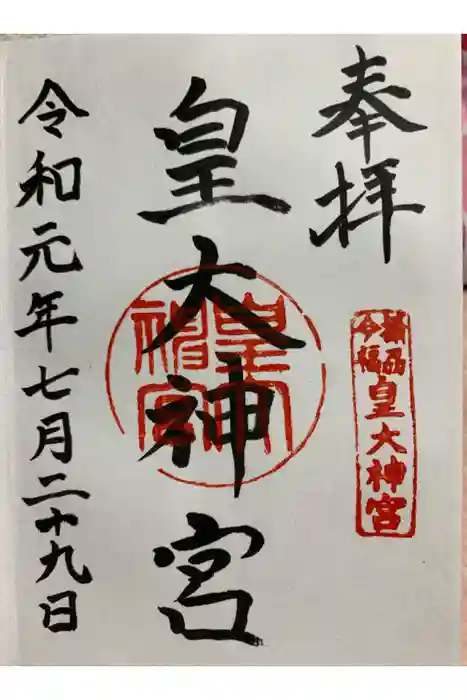 奉拝
今福
皇大神宮
皇大神宮
皇大神宮
令和元年七月二十九日